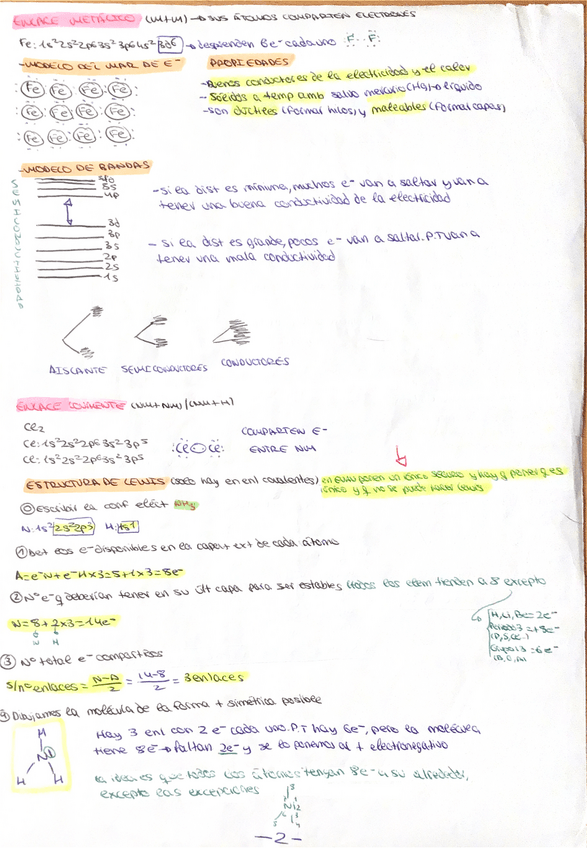 ENLACE METÁLICO (M+M) → SUS ÁTOMOS COMPARTEN ELECTRONES
Fe: 1s²2s²2p6 3s²3p6 4s² 3d6 → desprenden 8e⁻ cada uno F F
-MODELO DEL MAR DE E⁻
PROPIEDADES
-Buenos conductores de la electricidad y el calor
-Sólidos a temp amb salvo mercurio (Hg) → líquido
-son dúctiles (formar hilos) y maleables (formar capas)
Fe Fe Fe Fe
Fe Fe Fe Fe
Fe Fe Fe Fe
-MODELO DE BANDAS
5s
4p
3d
3p
3s
2p
2s
1s
-si la dist es mínima, muchos e⁻ van a saltar y van a
tener una buena conductividad de la electricidad
-si la dist es grande, pocos e⁻ van a saltar. P.T van a
tener una mala conductividad
AISLANTE SEMICONDUCTORES CONDUCTORES
ENLACE COVALENTE (NM+NM)/(NM+H)
Cl2
Cl: 1s²2s²2p6 3s²3p5
Cl: 1s²2s²2p6 3s²3p5
Cl Cl
COMPARTEN E⁻
ENTRE NM
ESTRUCTURA DE LEWIS (solo hay en enl covalentes)
⓪ Escribir la conf eléct NH3
N: 1s² 2s²2p3 H: 1s1
① Det los e⁻ disponibles en la capa + ext de cada átomo
A = e⁻N + e⁻H x3 = 5+1x3 = 8e⁻
② Nº e⁻ q deberían tener en su últ capa para ser estables (todos los elem tienden a 8 excepto
N = 8+2x3 = 14e⁻
N H
H, Li, Be = 2e⁻
Periodo 3 = +8e⁻
(P, S, Cl..)
Grupo 13 = 6e⁻
③ Nº total e⁻ compartidos
S/nº enlaces = N-A/2 = 14-8/2 = 3 enlaces
④ Dibujamos la molécula de la forma + simétrica posible
H
N
H H
Hay 3 enl con 2 e⁻ cada uno. P.T hay 6e⁻, pero la molécula
tiene 8e⁻ → faltan 2e⁻ y se lo ponemos al + electronegativo
La idea es que todos los átomos tengan 8e⁻ a su alrededor,
excepto las excepciones
-2-